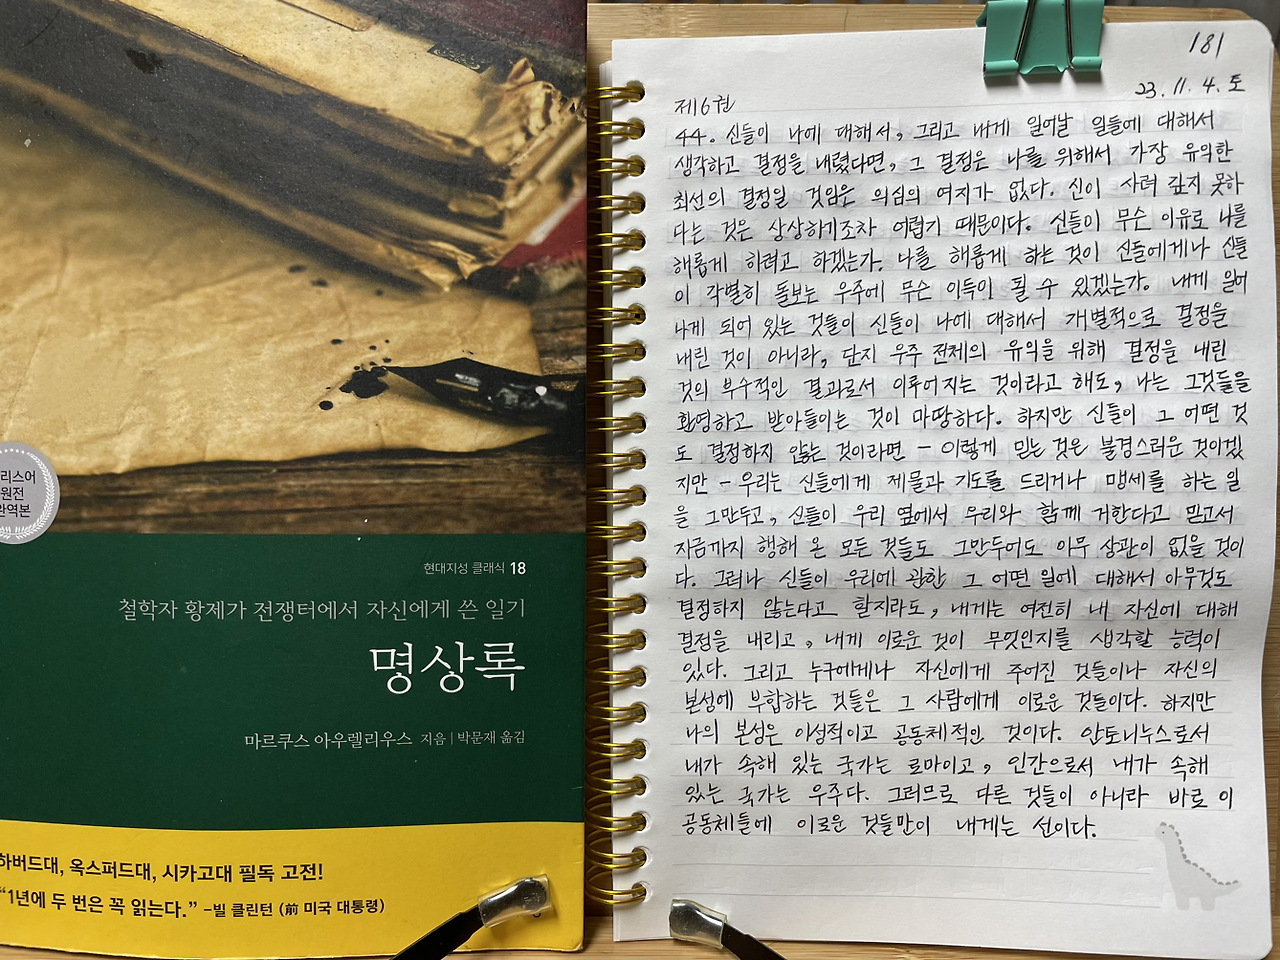 리스어
원전
완역본
현대지성 클래식 18
철학자 황제가 전쟁터에서 자신에게 쓴 일기
명상록
마르쿠스 아우렐리우스 지음 | 박문재 옮김
하버드대, 옥스퍼드대, 시카고대 필독 고전!
“1년에 두 번은 꼭 읽는다.” –빌 클린턴 (前 미국 대통령)
181
23. 11. 4. 토
제6권
44. 신들이 나에 대해서, 그리고 내게 일어날 일들에 대해서
생각하고 결정을 내렸다면, 그 결정은 나를 위해서 가장 유익한
최선의 결정일 것임은 의심의 여지가 없다. 신이 사려 깊지 못하
다는 것은 상상하기조차 어렵기 때문이다. 신들이 무슨 이유로 나를
해롭게 하려고 하겠는가. 나를 해롭게 하는 것이 신들에게나 신들
이 각별히 돌보는 우주에 무슨 이득이 될 수 있겠는가. 내게 일어
나게 되어 있는 것들이 신들이 나에 대해서 개별적으로 결정을
내린 것이 아니라, 단지 우주 전체의 유익을 위해 결정을 내린
것의 부수적인 결과로서 이루어지는 것이라고 해도, 나는 그것들을
환영하고 받아들이는 것이 마땅하다. 하지만 신들이 그 어떤 것
도 결정하지 않는 것이라면 - 이렇게 믿는 것은 불경스러운 것이겠
지만 - 우리는 신들에게 제물과 기도를 드리거나 맹세를 하는 일
을 그만두고, 신들이 우리 옆에서 우리와 함께 거한다고 믿고서
지금까지 행해 온 모든 것들도 그만두어도 아무 상관이 없을 것이
다. 그러나 신들이 우리에 관한 그 어떤 일에 대해서 아무것도
결정하지 않는다고 할지라도, 내게는 여전히 내 자신에 대해
결정을 내리고, 내게 이로운 것이 무엇인지를 생각할 능력이
있다. 그리고 누구에게나 자신에게 주어진 것들이나 자신의
본성에 부합하는 것들은 그 사람에게 이로운 것들이다. 하지만
나의 본성은 이성적이고 공동체적인 것이다. 안토니누스로서
내가 속해 있는 국가는 로마이고, 인간으로서 내가 속해
있는 국가는 우주다. 그러므로 다른 것들이 아니라 바로 이
공동체들에 이로운 것들만이 내게는 선이다.